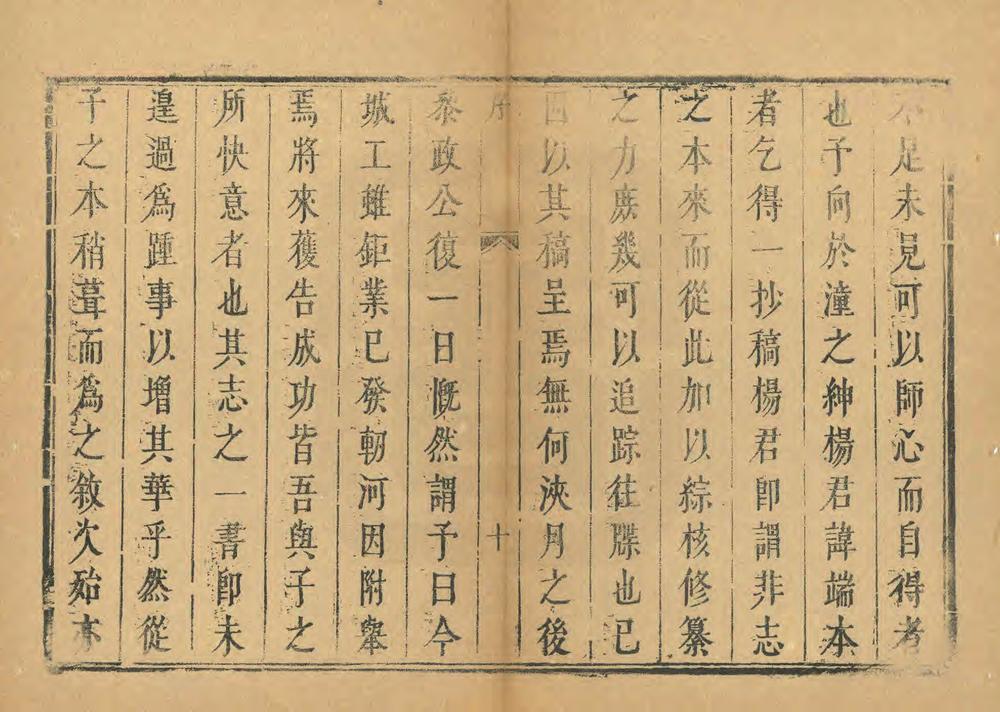 不足未見可以師心而自得者
也予向於潼之紳楊君諱端本
者乞得一抄稿楊君卽謂非志
之本來而從此加以綜核修纂
之力庶幾可以追踪往牒也已
因以其稿呈焉無何浹月之後
序 十
叅政公復一日慨然謂予曰今
城工雖鉅業已發軔河因附舉
焉將來獲告成功皆吾與子之
所快意者也其志之一書卽未
遑過爲踵事以增其華乎然從
子之本稍葺而爲之敘次殆亦